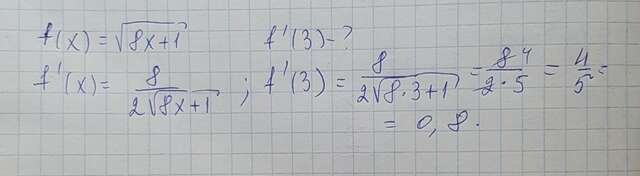 f(x) = √8x+1 f'(3) - ?
f'(x) = 8/2√8x+1 ; f'(3) = 8/2√8·3+1 = 8 4/2·5 = 4/5 =
= 0,8.